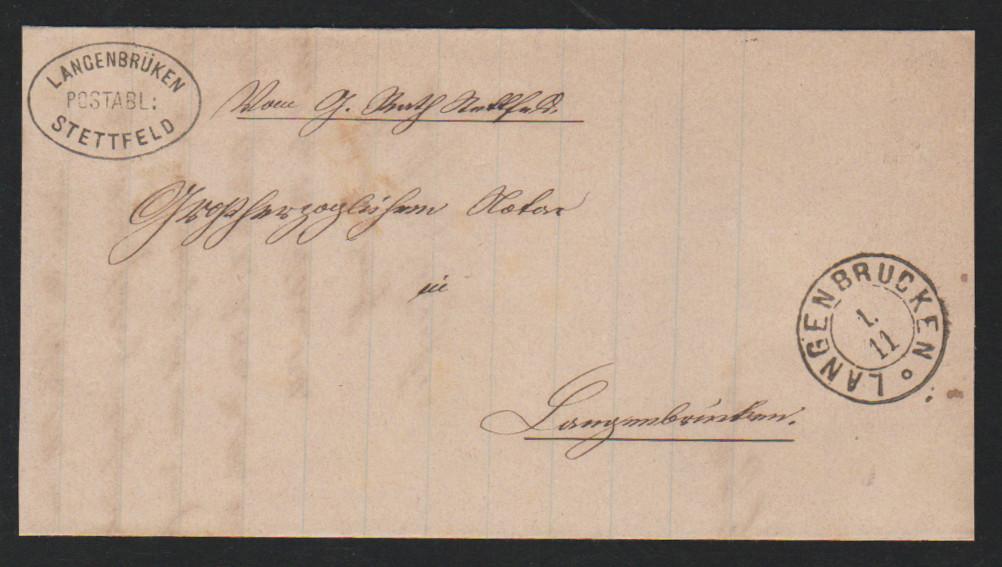 LANGENBRÜKEN
POSTABL:
STETTFELD
Vom G. Rath Stettfeld
Großherzoglichem Notar
in
Langenbrücken.
LANGENBRUCKEN
1.
11